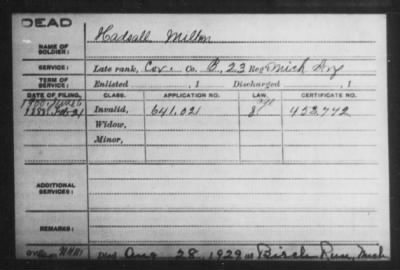 DEAD
NAME OF SOLDIER: Hadsall Milton
SERVICE: Late rank, Cor Co. B, 23 Reg. Mich Inf
TERM OF SERVICE: Enlisted , 1 Discharged , 1
DATE OF FILING. CLASS. APPLICATION NO. LAW. CERTIFICATE NO.
Invalid, 641.021 453.772
Widow,
Minor,
ADDITIONAL SERVICES:
REMARKS:
Died Aug 28, 1929 at Birch Run, Mich